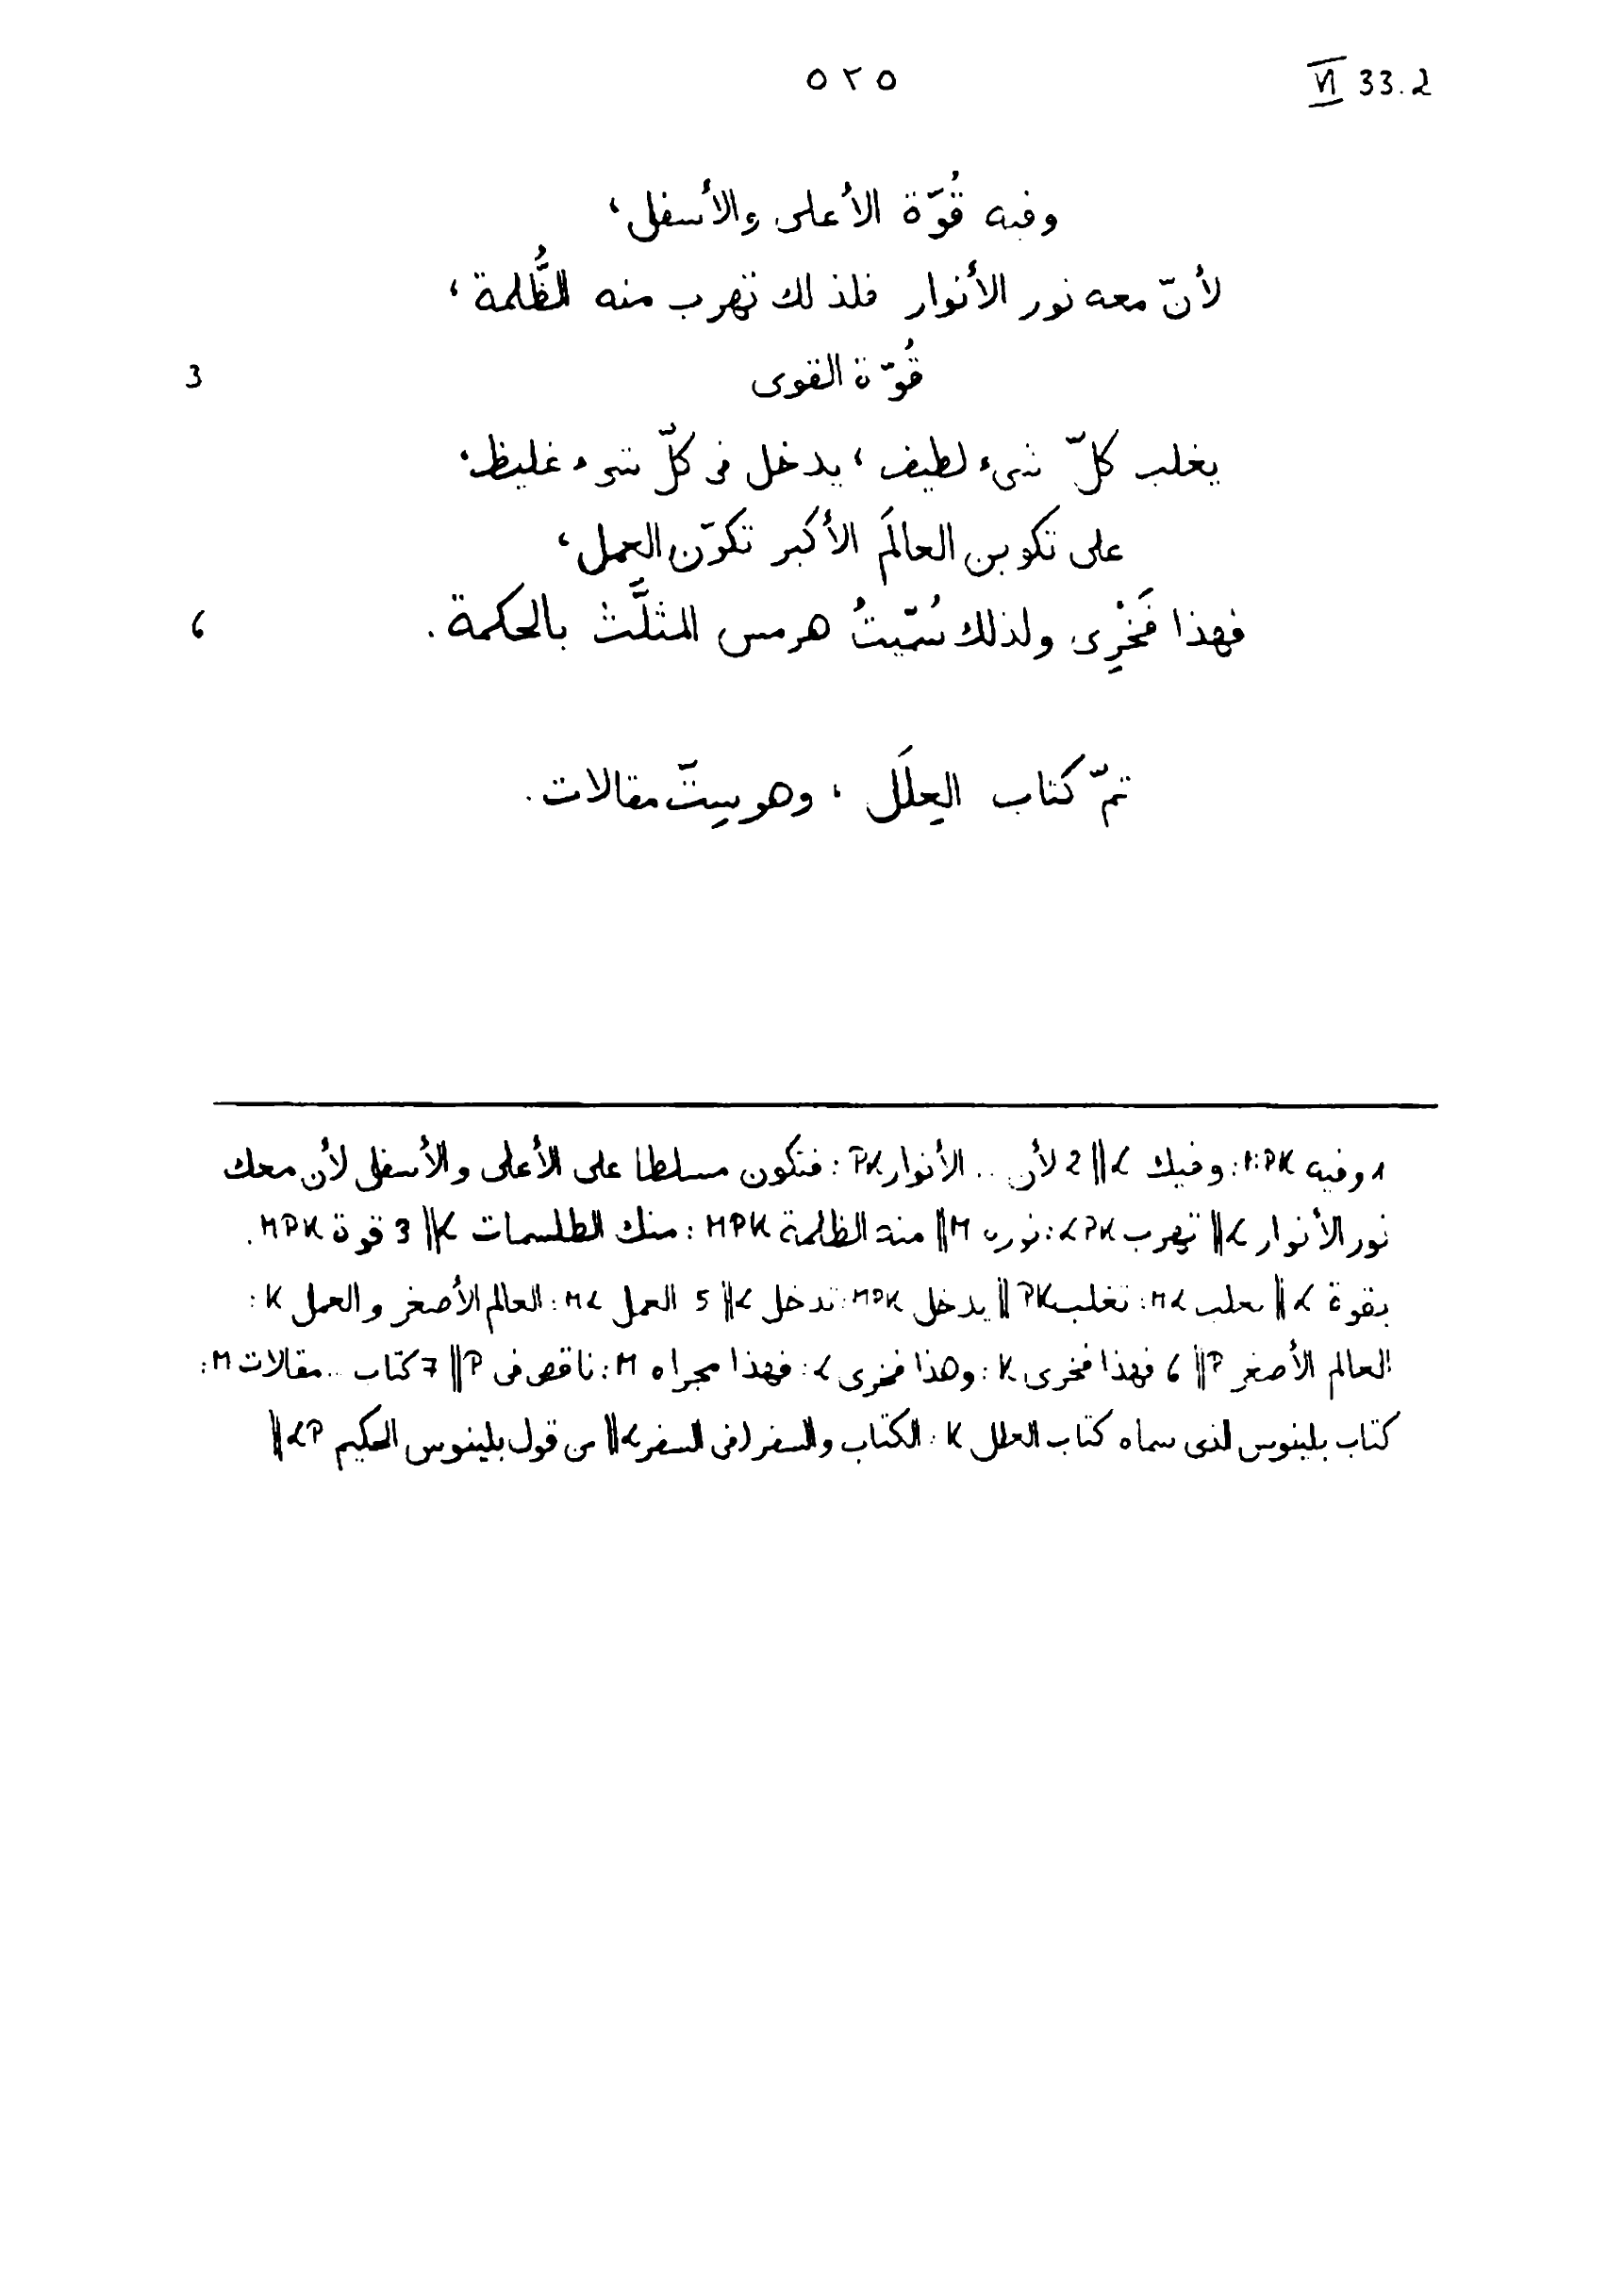 ٥٢٥ VI 33.2
وفيه قُوّة الأعلى والأسفل،
لأنّ معه نور الأنوار فلذلك تهرب منه الظُّلمة،
3 قُوّة القوى
يغلب كلّ شىء لطيف، يدخل فى كلّ شىء غليظ،
على تكوين العالَم الأكبر تكوّن العمل،
6 فهذا فَخْرِى ولذلك سُمّيتُ هرمس المثلَّث بالحكمة.
تمّ كتاب العِلَل، وهو سِتّ مقالات.
1 وفيه MPK: وفيك L || 2 لأن .. الأنوار PK: فتكون مسلطا على الأعلى والأسفل لأن معك
نور الأنوار L || تهرب LPK: نوره M || منه الظلمة MPK: منك الطلسمات L || 3 قوة MPK:
بقوة L || يغلب ML: تغلب PK || يدخل MPK: تدخل L || 5 العمل ML: العالم الأصغر والعمل K:
العالم الأصغر P || 6 فهذا فخرى K: وهذا فخرى L: فهذا مجراه M: ناقص فى P || 7 كتاب .. مقالات M:
كتاب بلينوس الذى سماه كتاب العلل K: الكتاب والسفر (فى السفر L || من قول بلينوس الحكيم LP ||